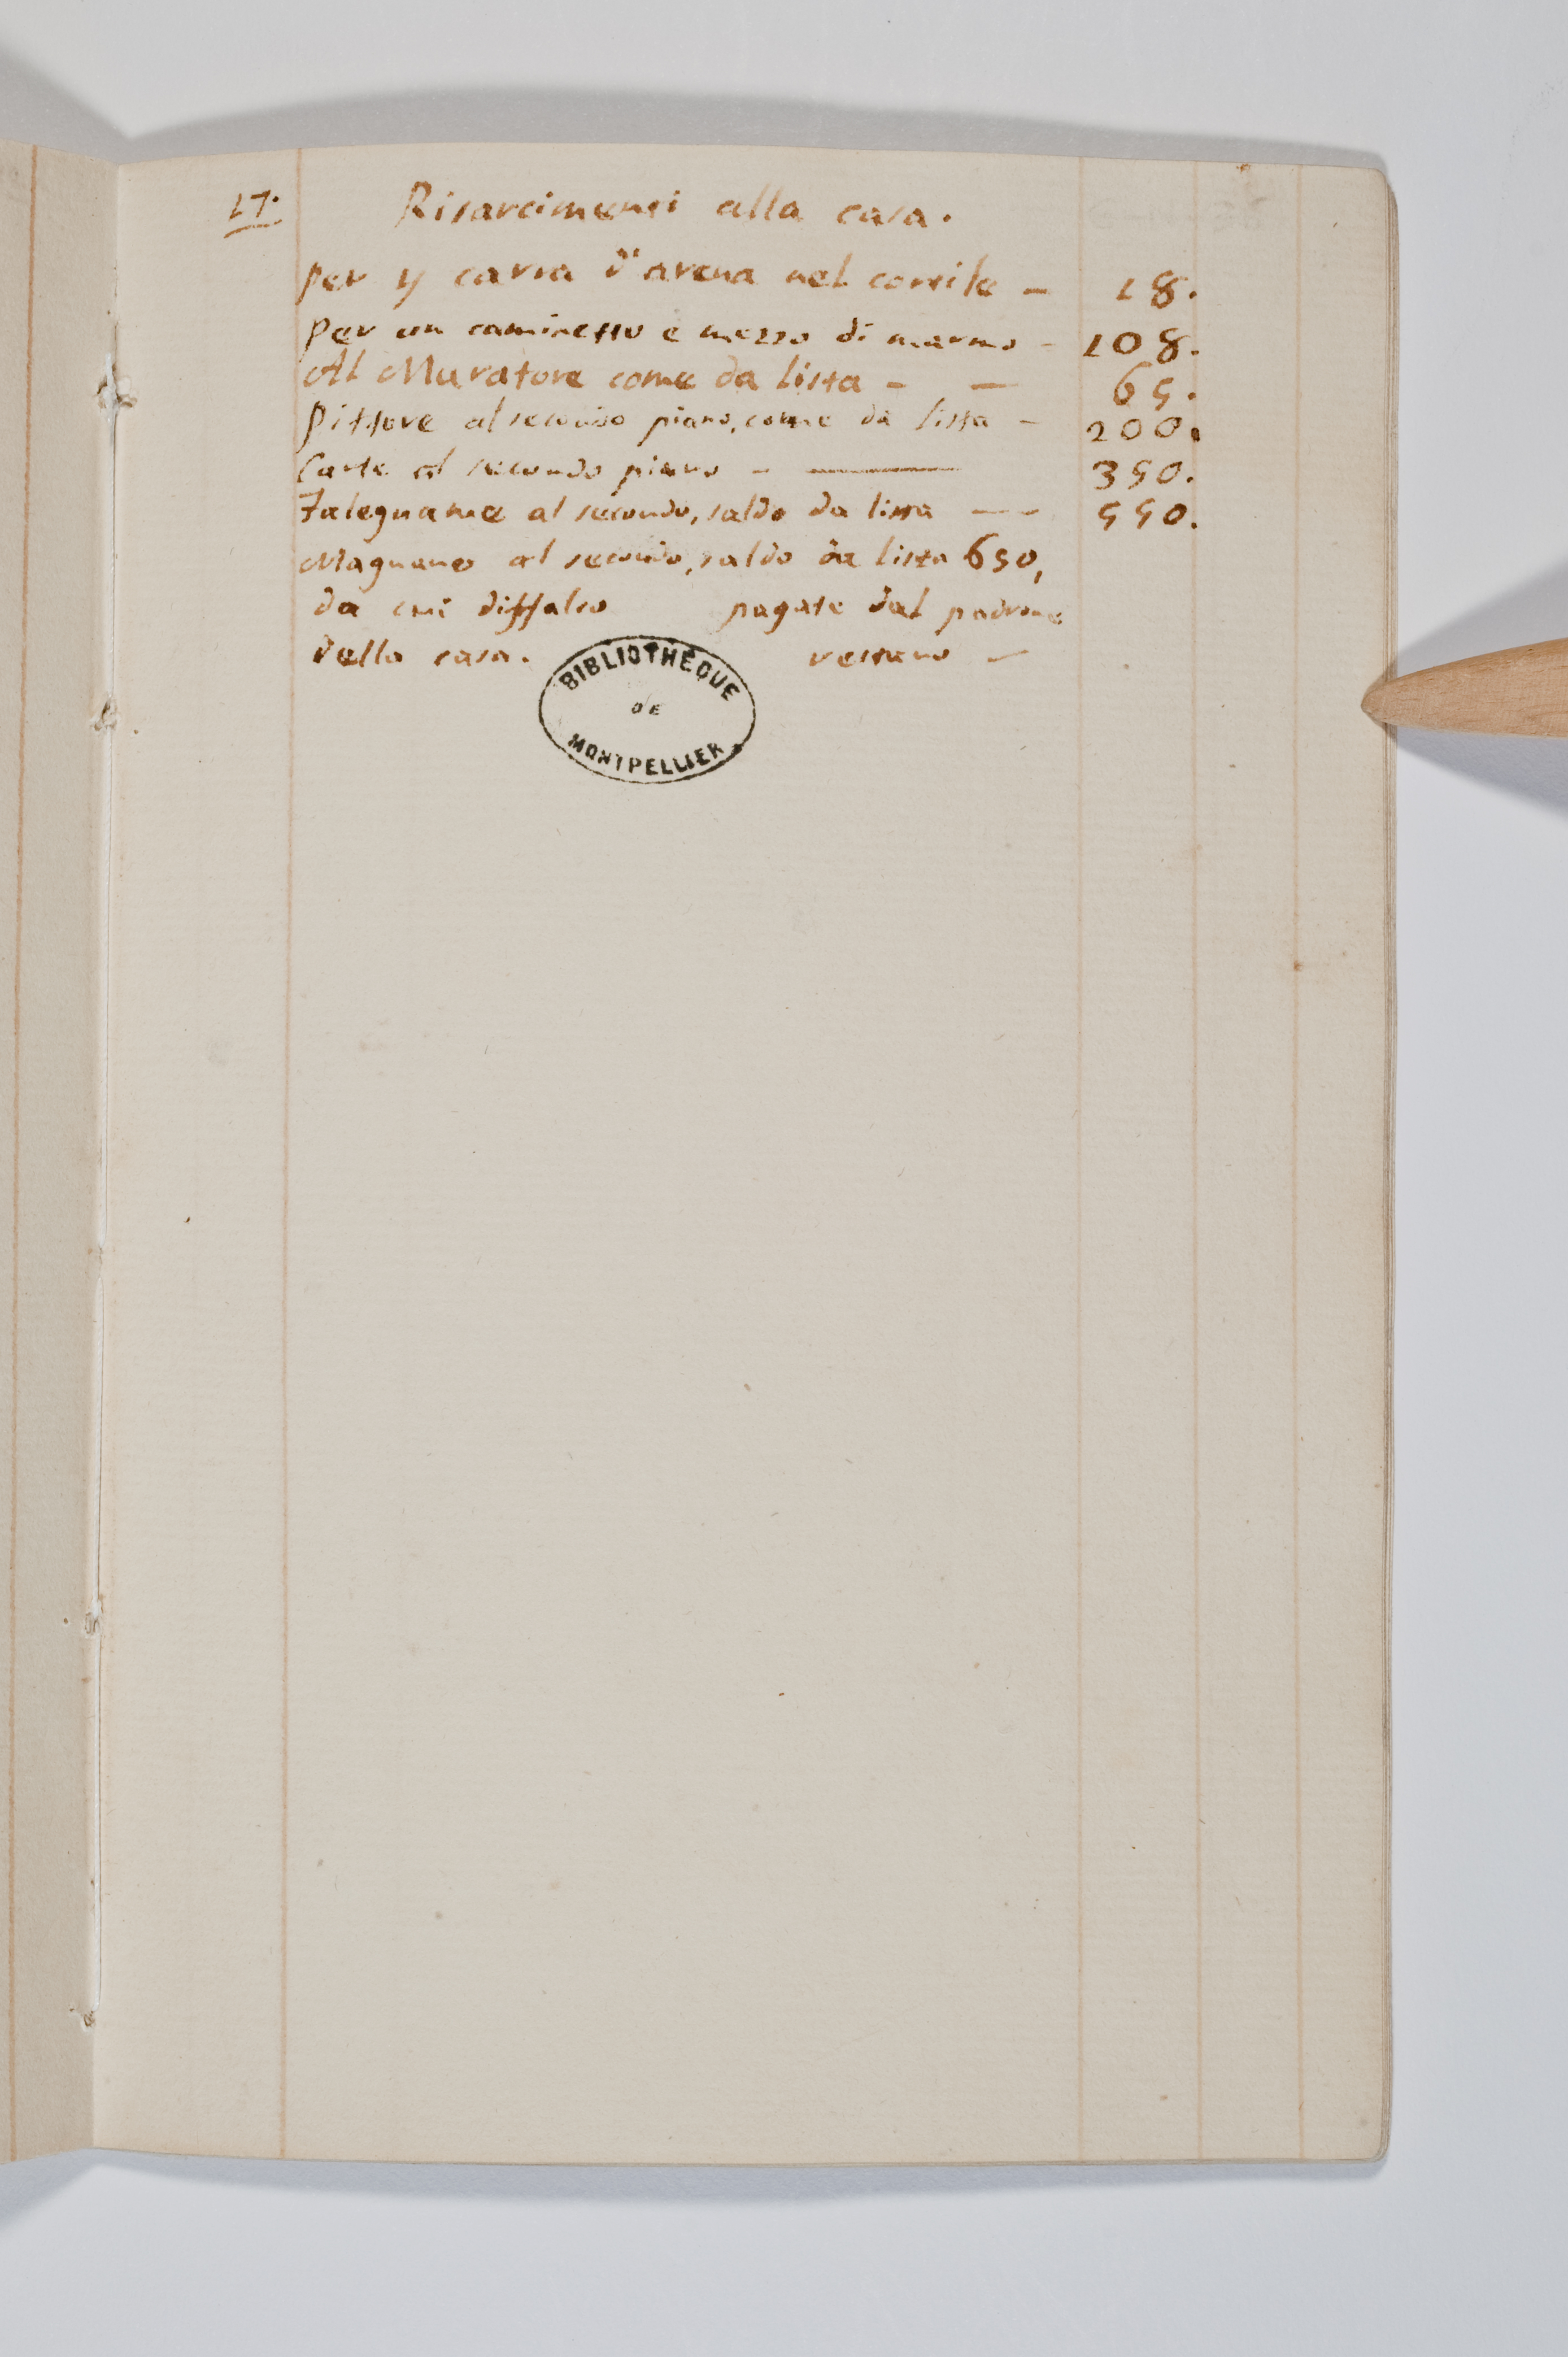 17. Risarcimenti alla casa.
Per 4 carra d'arena nel cortile - 18.
Per un caminetto e mezzo di marmo - 108.
Al Muratore come da lista - - 65.
Pittore al secondo piano, come da lista - 200.
Carte al secondo piano - - 350.
Falegname al secondo, saldo da lista - - 550.
Magnano al secondo, saldo da lista 650,
da cui diffalco pagate dal padrone
della casa. restano -
BIBLIOTHÈQUE
DE
MONTPELLIER